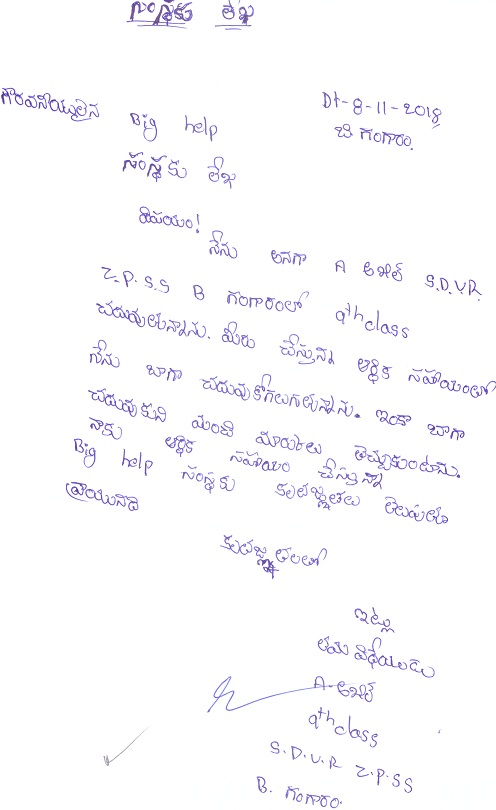 సంస్థకు లేఖ
Dt-8-11-2018
గౌరవనీయులైన Big help
బి గంగారం.
సంస్థకు లేఖ
విషయం!
నేను అనగా A అఖిల్ S.D.V.R.
Z.P.S.S B గంగారంలో 9th class
చదువుతున్నాను. మీరు చేస్తున్న ఆర్థిక సహాయంలో
నేను బాగా చదువుకోగలుగుతున్నాను. ఇంకా బాగా
చదువుకుని మంచి మార్కులు తెచ్చుకుంటాను.
నాకు ఆర్థిక సహాయం చేస్తున్నా
Big help సంస్థకు కృతజ్ఞతలు తెలుపుతూ
వ్రాయునది
కృతజ్ఞతలతో
ఇట్లు
తమ విధేయుడు
A-అఖిల్
9th class
S.D.V.R Z.P.SS
B. గంగారం.